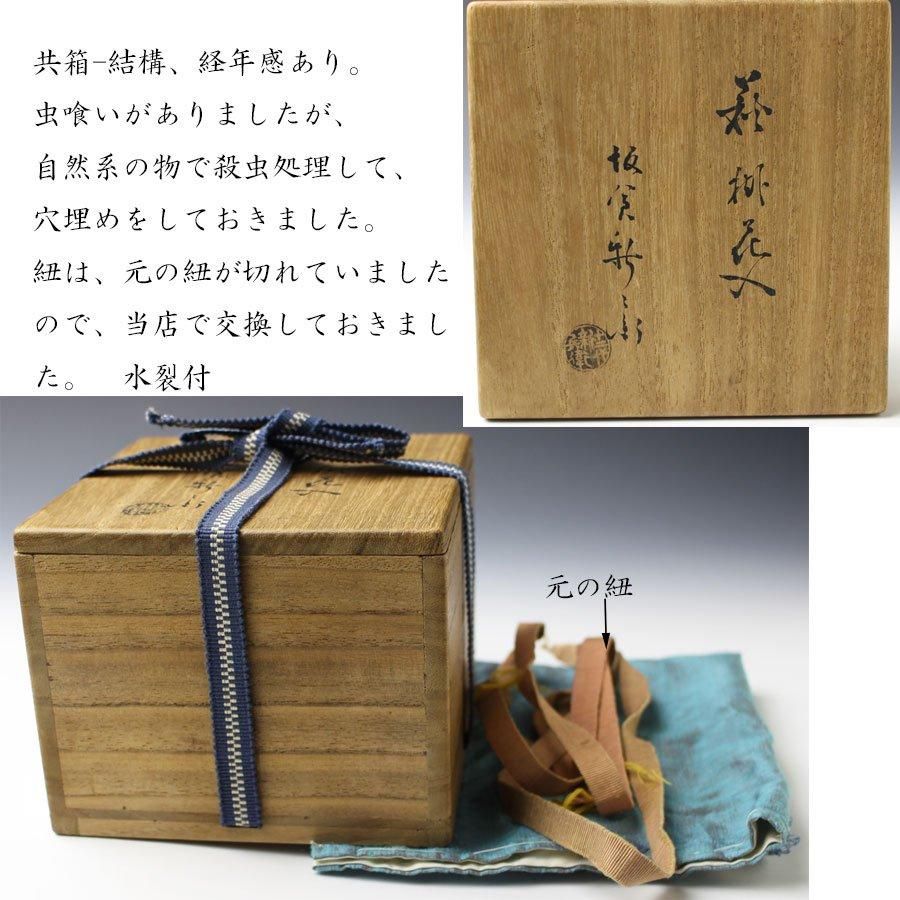 共箱-結構、経年感あり。
虫喰いがありましたが、
自然系の物で殺虫処理して、
穴埋めをしておきました。
紐は、元の紐が切れていました
ので、当店で交換しておきまし
た。　水裂付
萩 掛花入
坂倉新兵衛
元の紐
花入